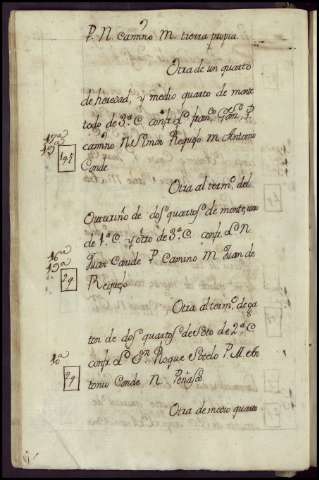 P. N. camino M. tierra propia
Otra de un quarto
de heredad, y medio quarto de monte
todo de 3ª C. confr. L. Fran.co
camino N. Simon Requejo M. Antonio
Conde
Otra al term.o del
de dos quartos de monte, uno
de 1ª C. y otro de 3ª C. confr. L. N.
Juan Conde P. Camino M. Juan de
Requejo
Otra al term.o de
de dos quartos de Soto de 2ª C.
confr. L. Roque Sotelo P. M. An
tonio Conde N. Peñasco
Otra de medio quarto